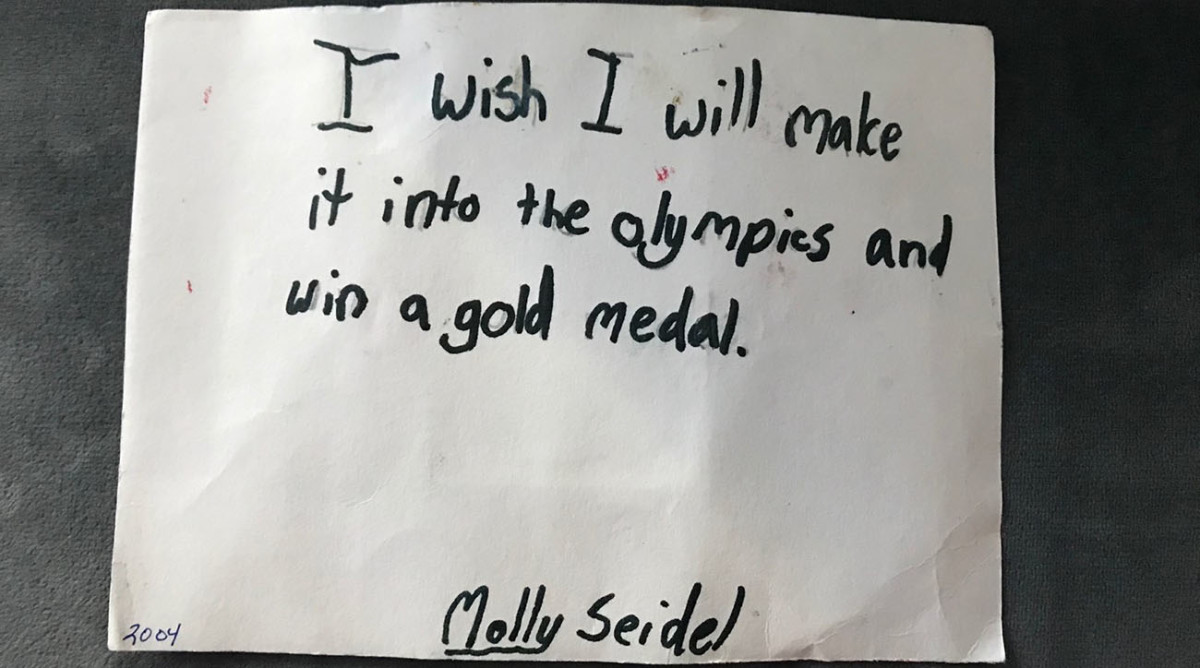 I wish I will make
it into the olympics and
win a gold medal.
Molly Seidel
2004